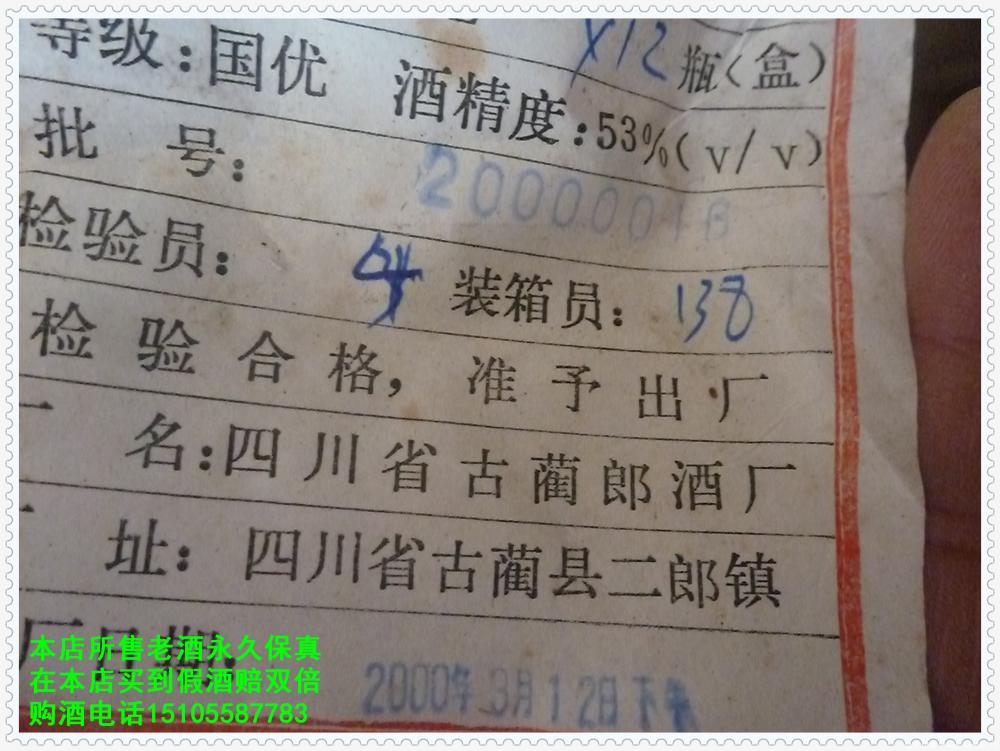 ×12 瓶(盒)
等级:国优 酒精度:53%(v/v)
批 号: 2000001B
检验员: 装箱员: 138
检验合格,准予出厂
名:四川省古蔺郎酒厂
址:四川省古蔺县二郎镇
2000年3月12日下午
本店所售老酒永久保真
在本店买到假酒赔双倍
购酒电话15105587783